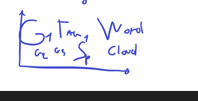 G1 Tag1 Word
G2 G3 S Cloud